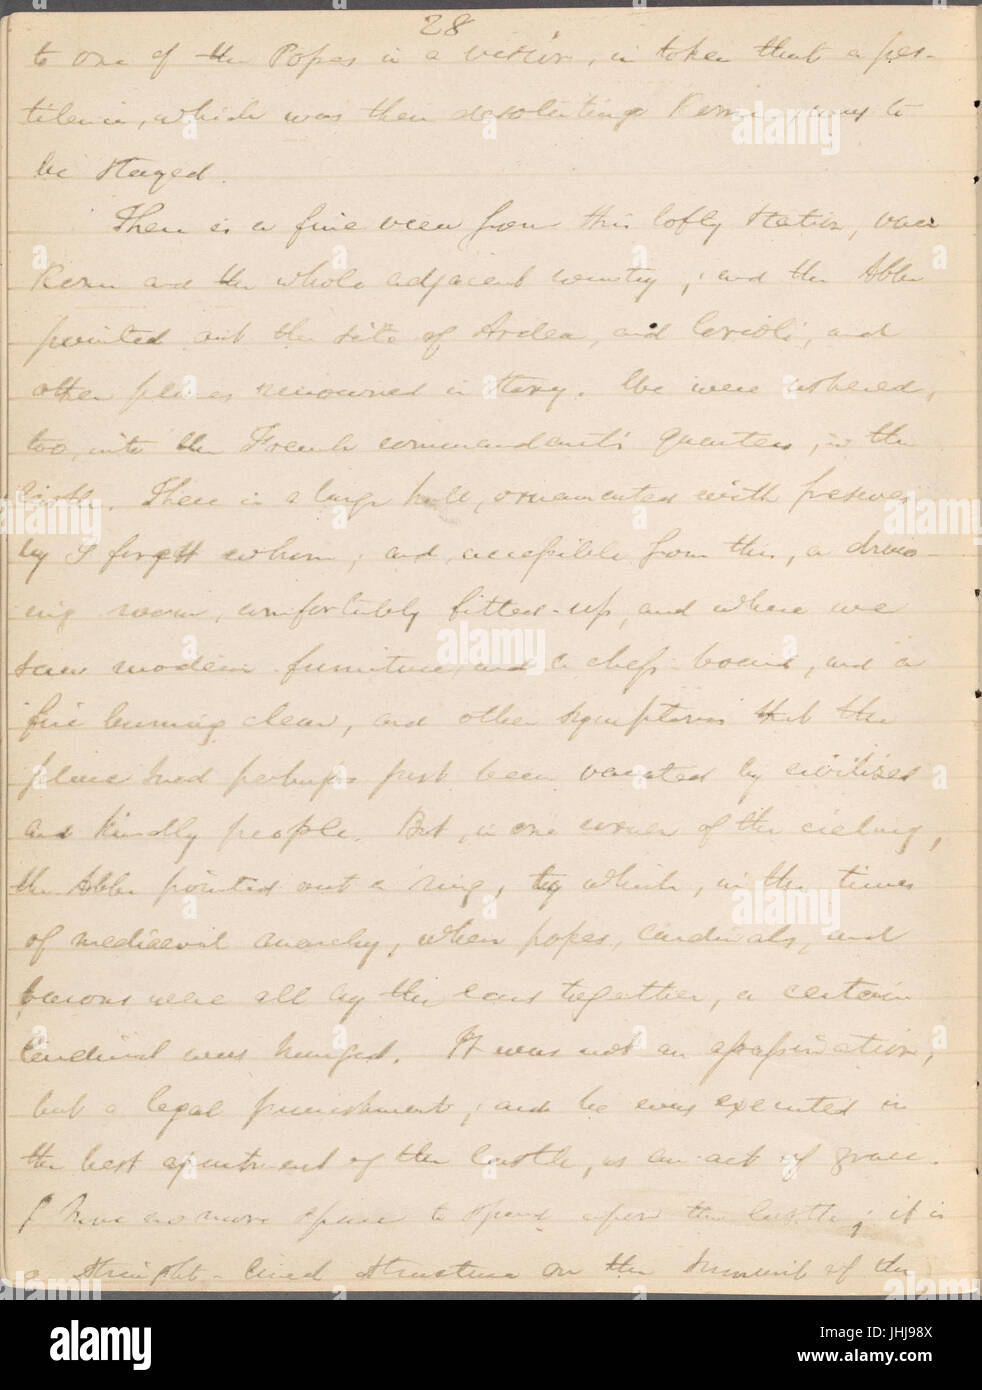 28
to one of the Popes in a vision, in token that a pes-
tilence, which was then desolating Rome, was to
be stayed.
There is a fine view from this lofty station, over
Rome and the whole adjacent country; and the Abbe
pointed out the site of Ardea, and Corioli, and
other places renowned in story. We were ushered,
too, into the French commandant's quarters, in the
Castle. There is a large hall, ornamented with frescoes
by I forget whom; and, accessible from this, a draw-
ing room, comfortably fitted-up, and where we
saw modern furniture, and a chess-board, and a
fire burning clear, and other symptoms that the
place had perhaps just been vacated by civilized
and kindly people. But, in one corner of the cieling,
the Abbe pointed out a ring, by which, in the times
of mediaeval anarchy, when popes, cardinals, and
barons were all by the ears together, a certain
Cardinal was hanged. It was not an assassination,
but a legal punishment; and he was executed in
the best apartment of the Castle, as an act of grace.
I have no more space to spend upon the castle; it is
a straight-lined structure on the summit of the
alamy
alamy stock photo
JHJ98X
www.alamy.com